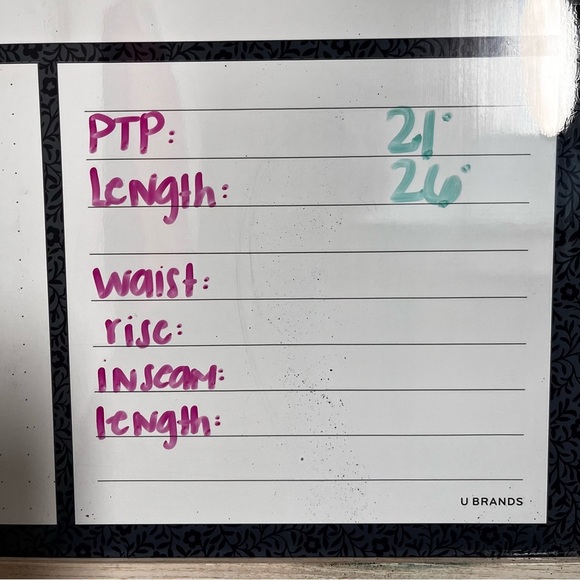 PTP: 21"
Length: 26"
waist:
rise:
inseam:
length:
U BRANDS